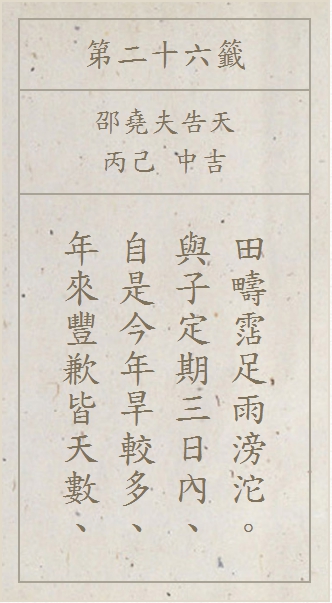 第二十六籤
邵堯夫告天
丙己 中吉
年來豐歉皆天數、
自是今年旱較多、
與子定期三日內、
田疇霑足雨滂沱。